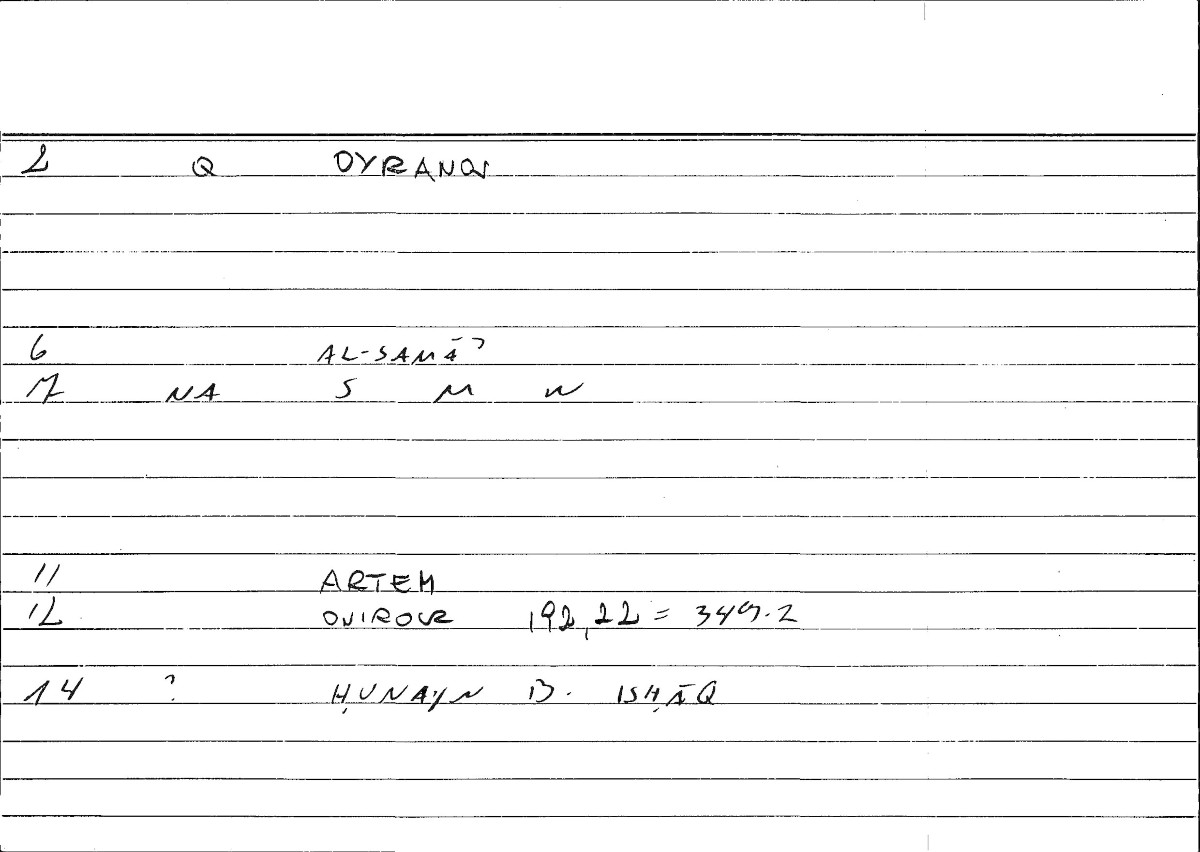 2 Q OYRANOS
6 AL-SAMĀʾ
7 NA S M W
11 ARTEM
12 ONIROCR 192,22 = 349.2
14 ? ḤUNAYN B. ISḤĀQ